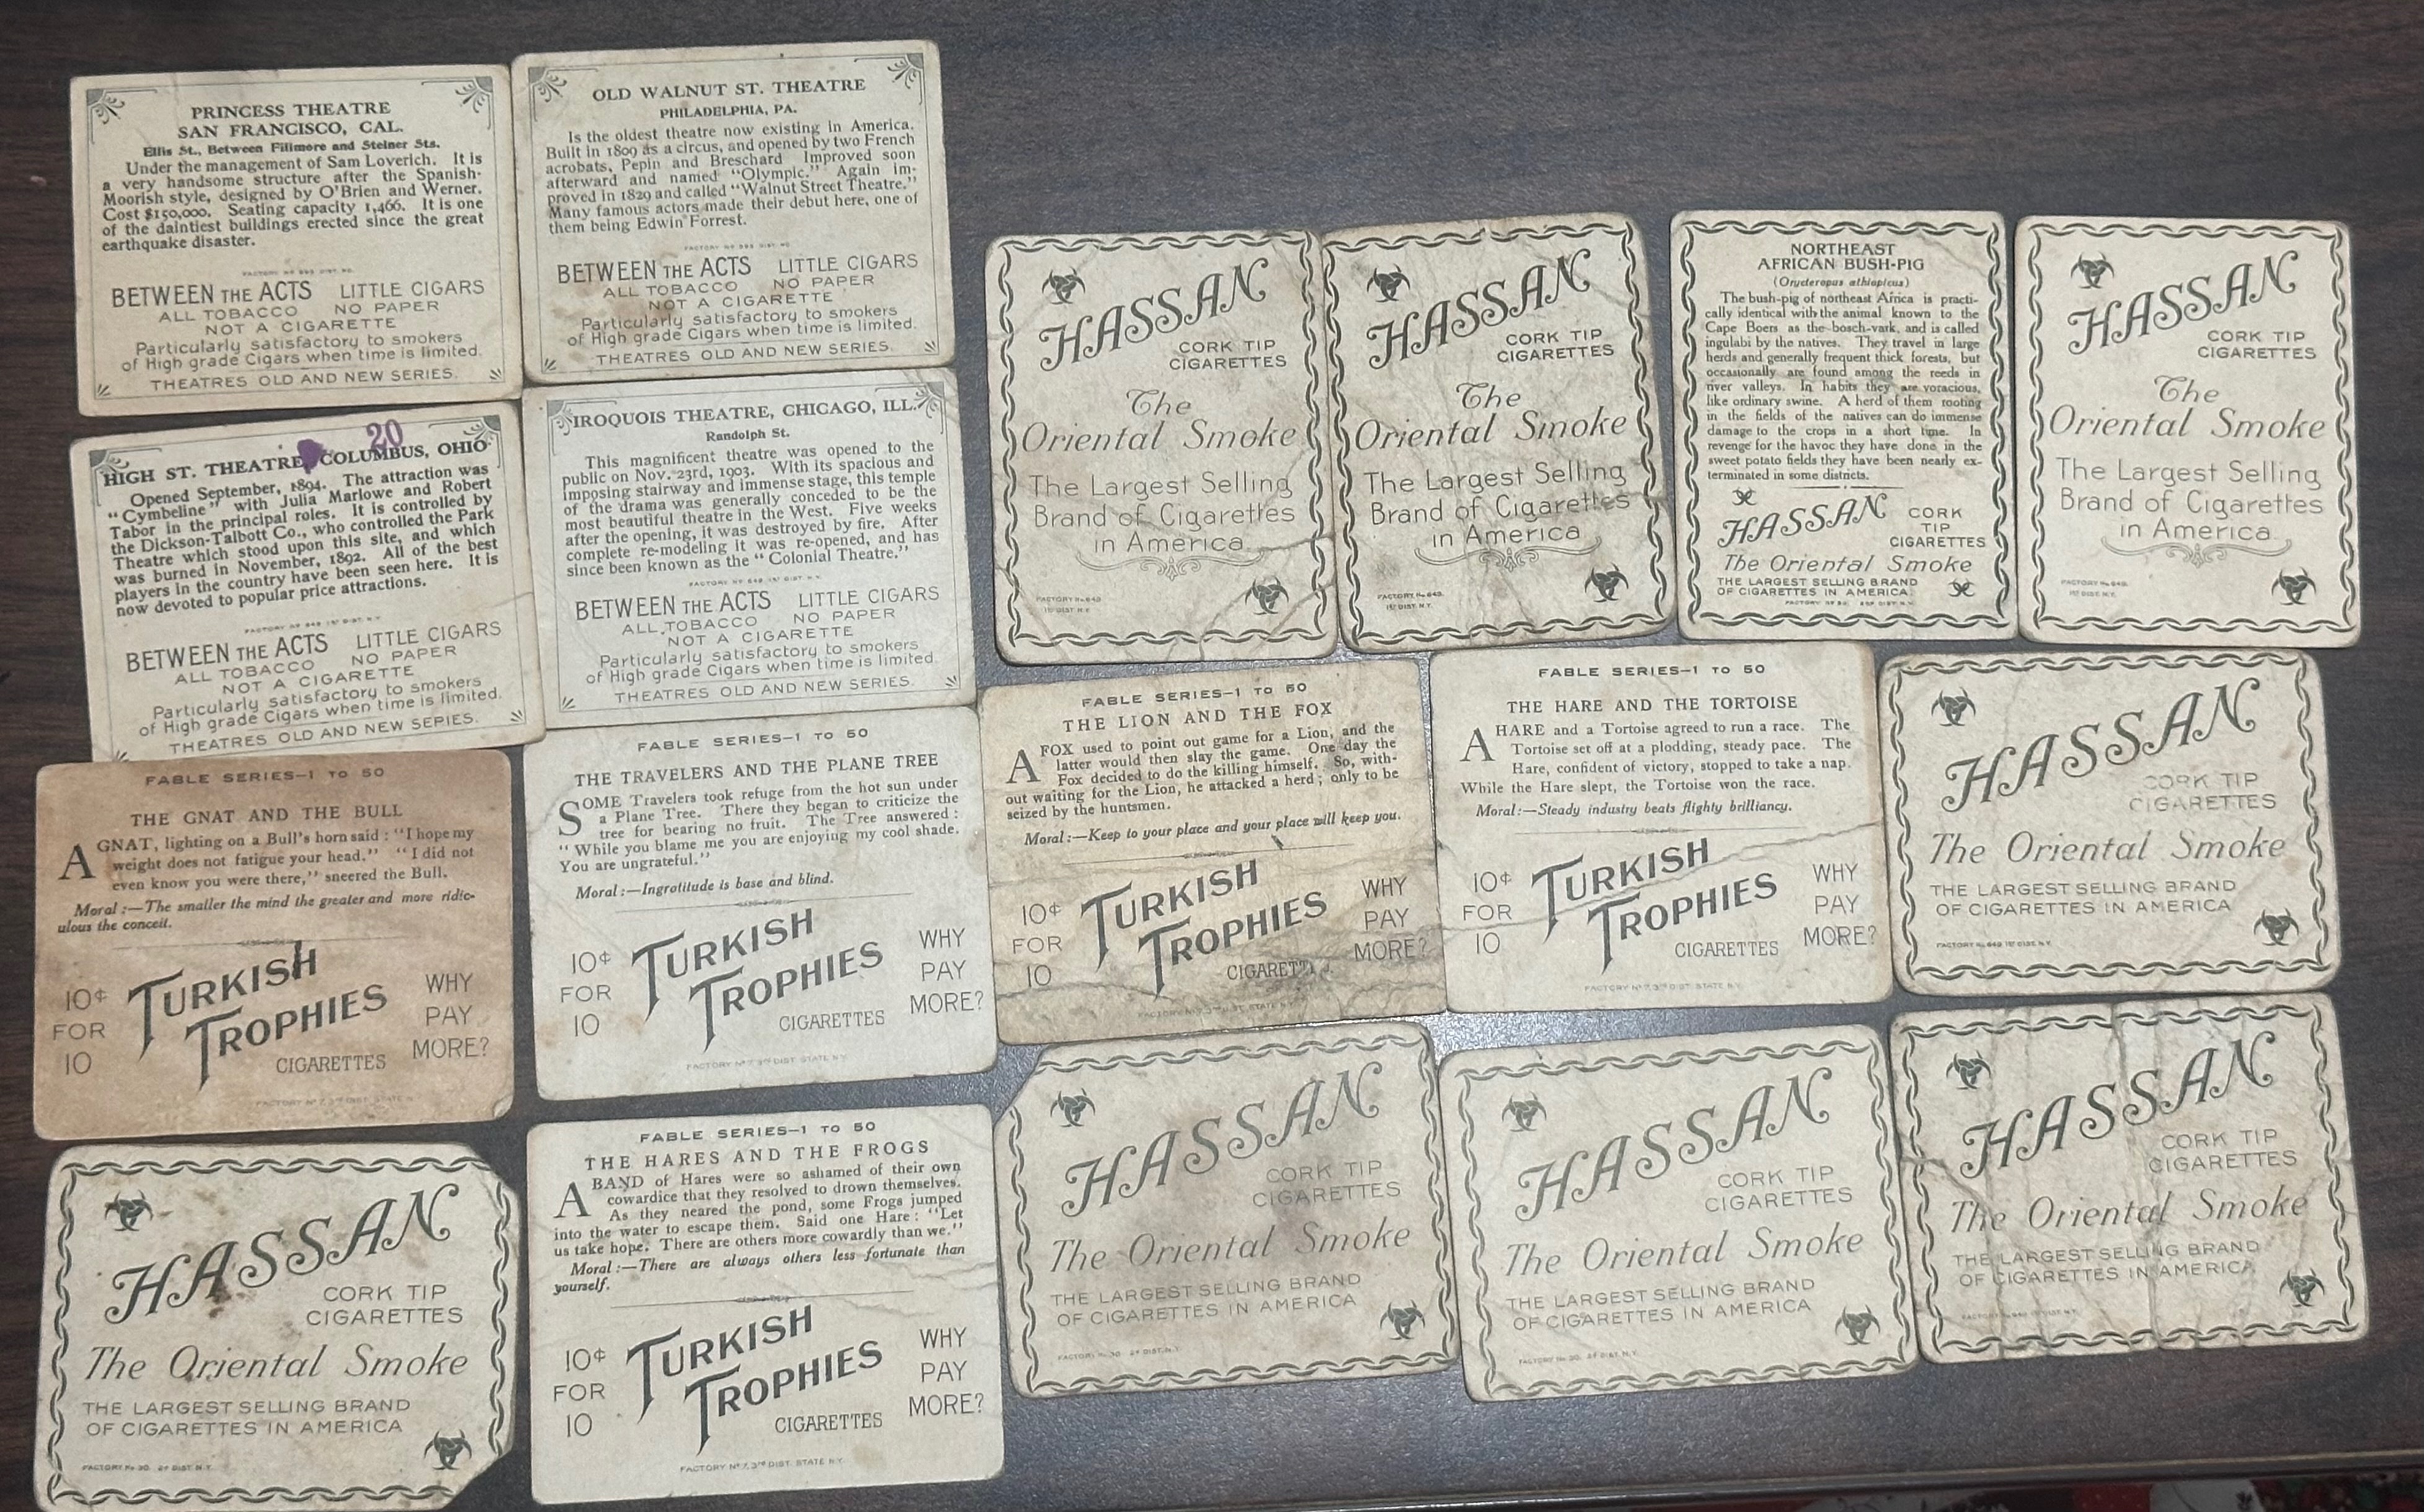 PRINCESS THEATRE
SAN FRANCISCO, CAL.
Ellis St., Between Fillmore and Steiner Sts.
Under the management of Sam Loverich. It is
a very handsome structure after the Spanish-
Moorish style, designed by O'Brien and Werner.
Cost $150,000. Seating capacity 1,466. It is one
of the daintiest buildings erected since the great
earthquake disaster.
BETWEEN THE ACTS LITTLE CIGARS
ALL TOBACCO NO PAPER
NOT A CIGARETTE
Particularly satisfactory to smokers
of High grade Cigars when time is limited.
THEATRES OLD AND NEW SERIES.
OLD WALNUT ST. THEATRE
PHILADELPHIA, PA.
Is the oldest theatre now existing in America.
Built in 1809 as a circus, and opened by two French
acrobats, Pepin and Breschard Improved soon
afterward and named "Olympic." Again im-
proved in 1829 and called "Walnut Street Theatre."
Many famous actors made their debut here, one of
them being Edwin Forrest.
BETWEEN THE ACTS LITTLE CIGARS
ALL TOBACCO NO PAPER
NOT A CIGARETTE
Particularly satisfactory to smokers
of High grade Cigars when time is limited.
THEATRES OLD AND NEW SERIES.
20
HIGH ST. THEATRE, COLUMBUS, OHIO
Opened September, 1894. The attraction was
"Cymbeline" with Julia Marlowe and Robert
Tabor in the principal roles. It is controlled by
the Dickson-Talbott Co., who controlled the Park
Theatre which stood upon this site, and which
was burned in November, 1892. All of the best
players in the country have been seen here. It is
now devoted to popular price attractions.
BETWEEN THE ACTS LITTLE CIGARS
ALL TOBACCO NO PAPER
NOT A CIGARETTE
Particularly satisfactory to smokers
of High grade Cigars when time is limited.
THEATRES OLD AND NEW SERIES.
IROQUOIS THEATRE, CHICAGO, ILL.
Randolph St.
This magnificent theatre was opened to the
public on Nov. 23rd, 1903. With its spacious and
imposing stairway and immense stage, this temple
of the drama was generally conceded to be the
most beautiful theatre in the West. Five weeks
after the opening, it was destroyed by fire. After
complete re-modeling it was re-opened, and has
since been known as the "Colonial Theatre."
FACTORY Nº 649 1ST DIST. N.Y.
BETWEEN THE ACTS LITTLE CIGARS
ALL TOBACCO NO PAPER
NOT A CIGARETTE
Particularly satisfactory to smokers
of High grade Cigars when time is limited.
THEATRES OLD AND NEW SERIES.
HASSAN
CORK TIP
CIGARETTES
The
Oriental Smoke
The Largest Selling
Brand of Cigarettes
in America
FACTORY No. 649.
1ST DIST. N.Y.
HASSAN
CORK TIP
CIGARETTES
The
Oriental Smoke
The Largest Selling
Brand of Cigarettes
in America
FACTORY No. 649.
1ST DIST. N.Y.
NORTHEAST
AFRICAN BUSH-PIG
(Orycteropus æthiopicus)
The bush-pig of northeast Africa is practi-
cally identical with the animal known to the
Cape Boers as the bosch-vark, and is called
ingulabi by the natives. They travel in large
herds and generally frequent thick forests, but
occasionally are found among the reeds in
river valleys. In habits they are voracious,
like ordinary swine. A herd of them rooting
in the fields of the natives can do immense
damage to the crops in a short time. In
revenge for the havoc they have done in the
sweet potato fields they have been nearly ex-
terminated in some districts.
HASSAN CORK
TIP
CIGARETTES
The Oriental Smoke
THE LARGEST SELLING BRAND
OF CIGARETTES IN AMERICA.
HASSAN
CORK TIP
CIGARETTES
The
Oriental Smoke
The Largest Selling
Brand of Cigarettes
in America
FACTORY No. 649.
1ST DIST. N.Y.
FABLE SERIES—1 TO 50
THE GNAT AND THE BULL
A GNAT, lighting on a Bull's horn said: "I hope my
weight does not fatigue your head." "I did not
even know you were there," sneered the Bull.
Moral:—The smaller the mind the greater and more ridic-
ulous the conceit.
10¢
FOR
10
TURKISH
TROPHIES
CIGARETTES
WHY
PAY
MORE?
FABLE SERIES—1 TO 50
THE TRAVELERS AND THE PLANE TREE
SOME Travelers took refuge from the hot sun under
a Plane Tree. There they began to criticize the
tree for bearing no fruit. The Tree answered:
"While you blame me you are enjoying my cool shade.
You are ungrateful."
Moral:—Ingrotitude is base and blind.
10¢
FOR
10
TURKISH
TROPHIES
CIGARETTES
WHY
PAY
MORE?
FACTORY Nº 7, 3RD DIST. STATE N.Y.
FABLE SERIES—1 TO 50
THE LION AND THE FOX
A FOX used to point out game for a Lion, and the
latter would then slay the game. One day the
Fox decided to do the killing himself. So, with-
out waiting for the Lion, he attacked a herd; only to be
seized by the huntsmen.
Moral:—Keep to your place and your place will keep you.
10¢
FOR
10
TURKISH
TROPHIES
WHY
PAY
MORE?
FABLE SERIES—1 TO 50
THE HARE AND THE TORTOISE
A HARE and a Tortoise agreed to run a race. The
Tortoise set off at a plodding, steady pace. The
Hare, confident of victory, stopped to take a nap.
While the Hare slept, the Tortoise won the race.
Moral:—Steady industry beats flighty brilliancy.
10¢
FOR
10
TURKISH
TROPHIES
CIGARETTES
WHY
PAY
MORE?
FACTORY Nº 7, 3RD DIST. STATE N.Y.
HASSAN
CORK TIP
CIGARETTES
The Oriental Smoke
THE LARGEST SELLING BRAND
OF CIGARETTES IN AMERICA
FACTORY No. 649 1ST DIST. N.Y.
HASSAN
CORK TIP
CIGARETTES
The Oriental Smoke
THE LARGEST SELLING BRAND
OF CIGARETTES IN AMERICA
FACTORY No. 30. 2ND DIST. N.Y.
FABLE SERIES—1 TO 50
THE HARES AND THE FROGS
A BAND of Hares were so ashamed of their own
cowardice that they resolved to drown themselves.
As they neared the pond, some Frogs jumped
into the water to escape them. Said one Hare: "Let
us take hope. There are others more cowardly than we."
Moral:—There are always others less fortunate than
yourself.
10¢
FOR
10
TURKISH
TROPHIES
CIGARETTES
WHY
PAY
MORE?
FACTORY Nº 7, 3RD DIST. STATE N.Y.
HASSAN
CORK TIP
CIGARETTES
The Oriental Smoke
THE LARGEST SELLING BRAND
OF CIGARETTES IN AMERICA
FACTORY No. 30. 2ND DIST. N.Y.
HASSAN
CORK TIP
CIGARETTES
The Oriental Smoke
THE LARGEST SELLING BRAND
OF CIGARETTES IN AMERICA
FACTORY No. 30. 2ND DIST. N.Y.
HASSAN
CORK TIP
CIGARETTES
The Oriental Smoke
THE LARGEST SELLING BRAND
OF CIGARETTES IN AMERICA